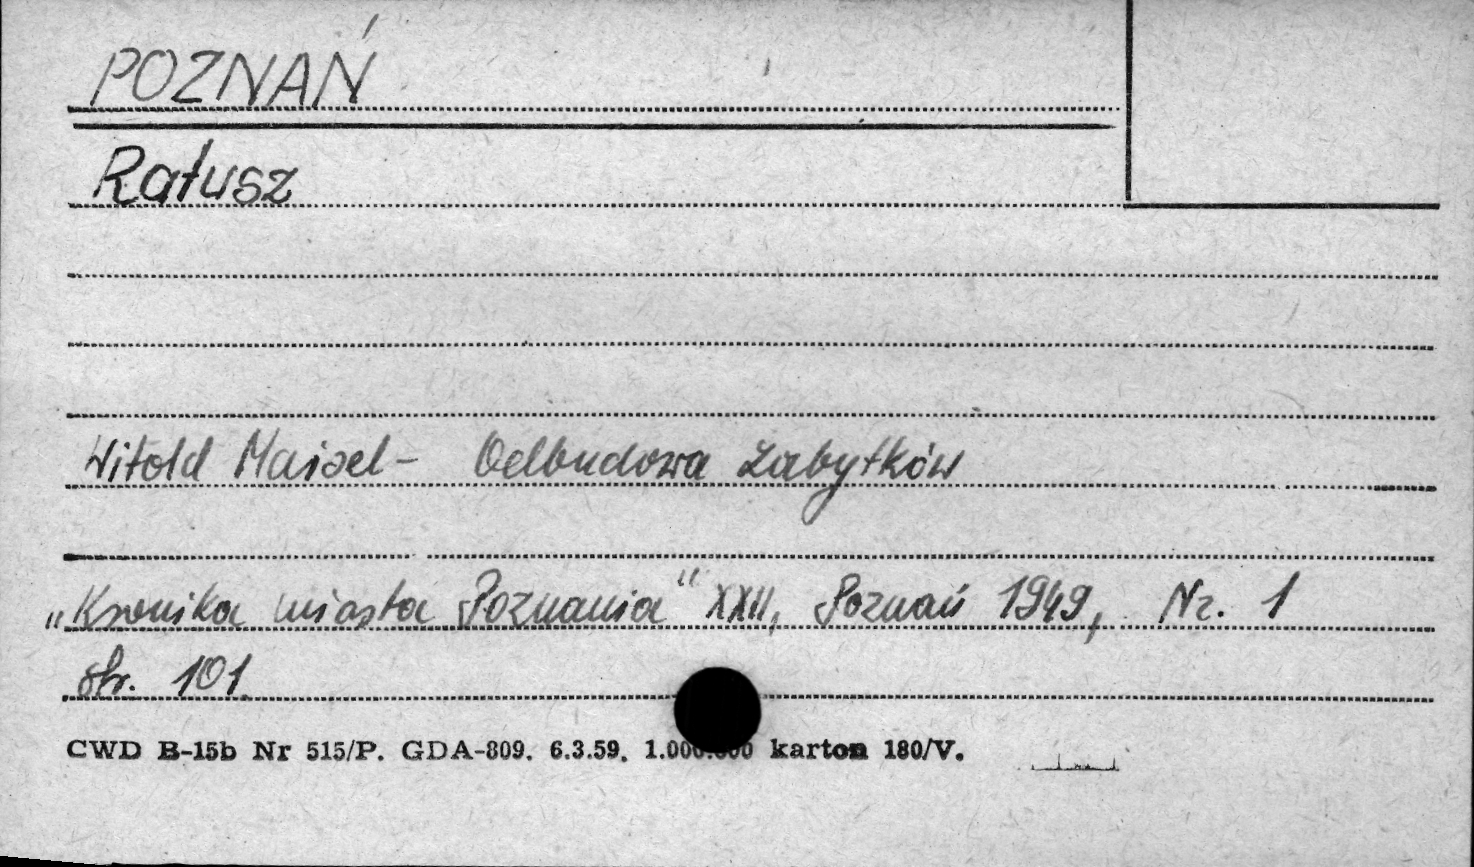 POZNAŃ
Ratusz
Witold Maisel - Odbudowa zabytków
„Kronika miasta Poznania" XXII, Poznań 1949, Nr. 1
str. 101
CWD B-15b Nr 515/P. GDA-809. 6.3.59. 1.000.000 karton 180/V.